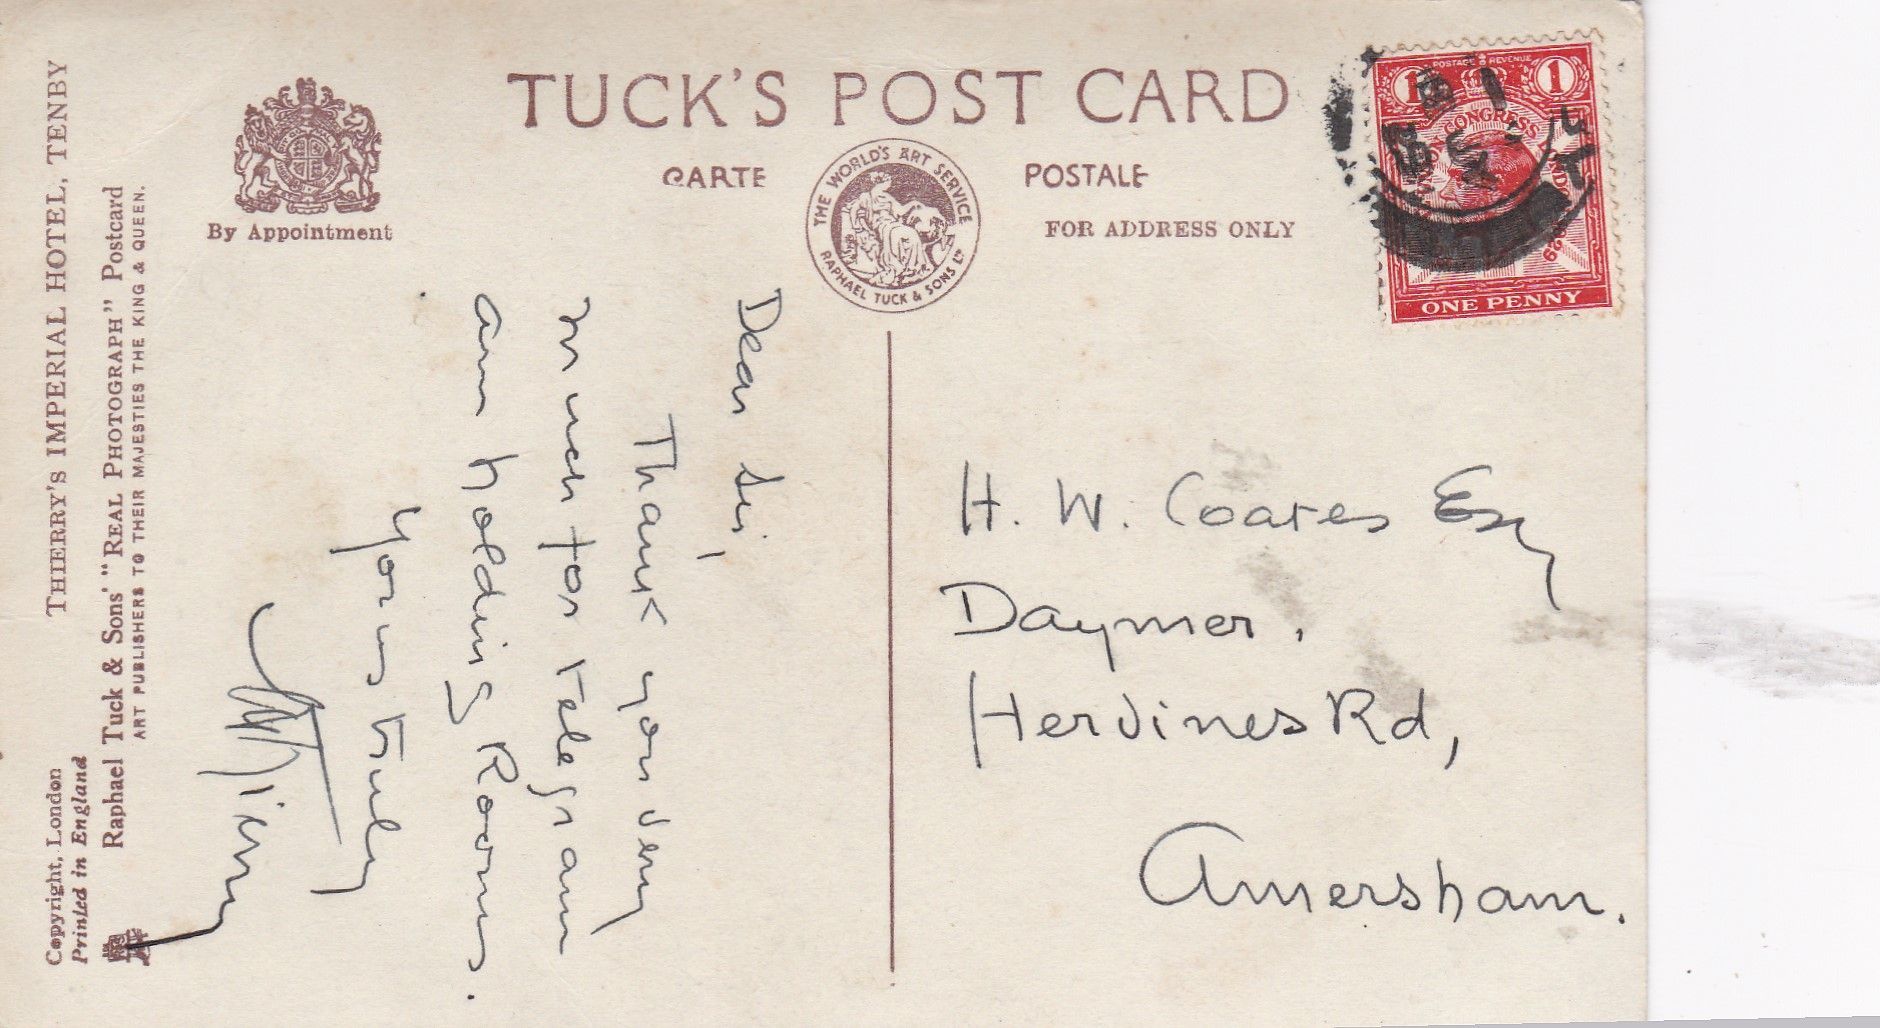 TUCK'S POST CARD
CARTE POSTALE
FOR ADDRESS ONLY
By Appointment
THE WORLD'S ART SERVICE
RAPHAEL TUCK & SONS LTD
THIERRY'S IMPERIAL HOTEL, TENBY
Copyright, London
Printed in England
Raphael Tuck & Sons' "REAL PHOTOGRAPH" Postcard
ART PUBLISHERS TO THEIR MAJESTIES THE KING & QUEEN.
POSTAGE & REVENUE
1 1
CONGRESS
ONE PENNY
Dear Sir,
Thank you very
much for telegram
am holding Rooms.
Yours truly
H. W. Coates Esq
Daymer,
Hervines Rd,
Amersham.